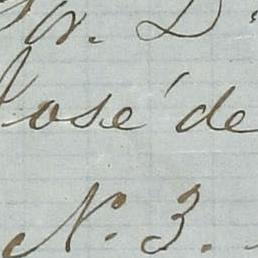 Sr. D
José de
N. 3.